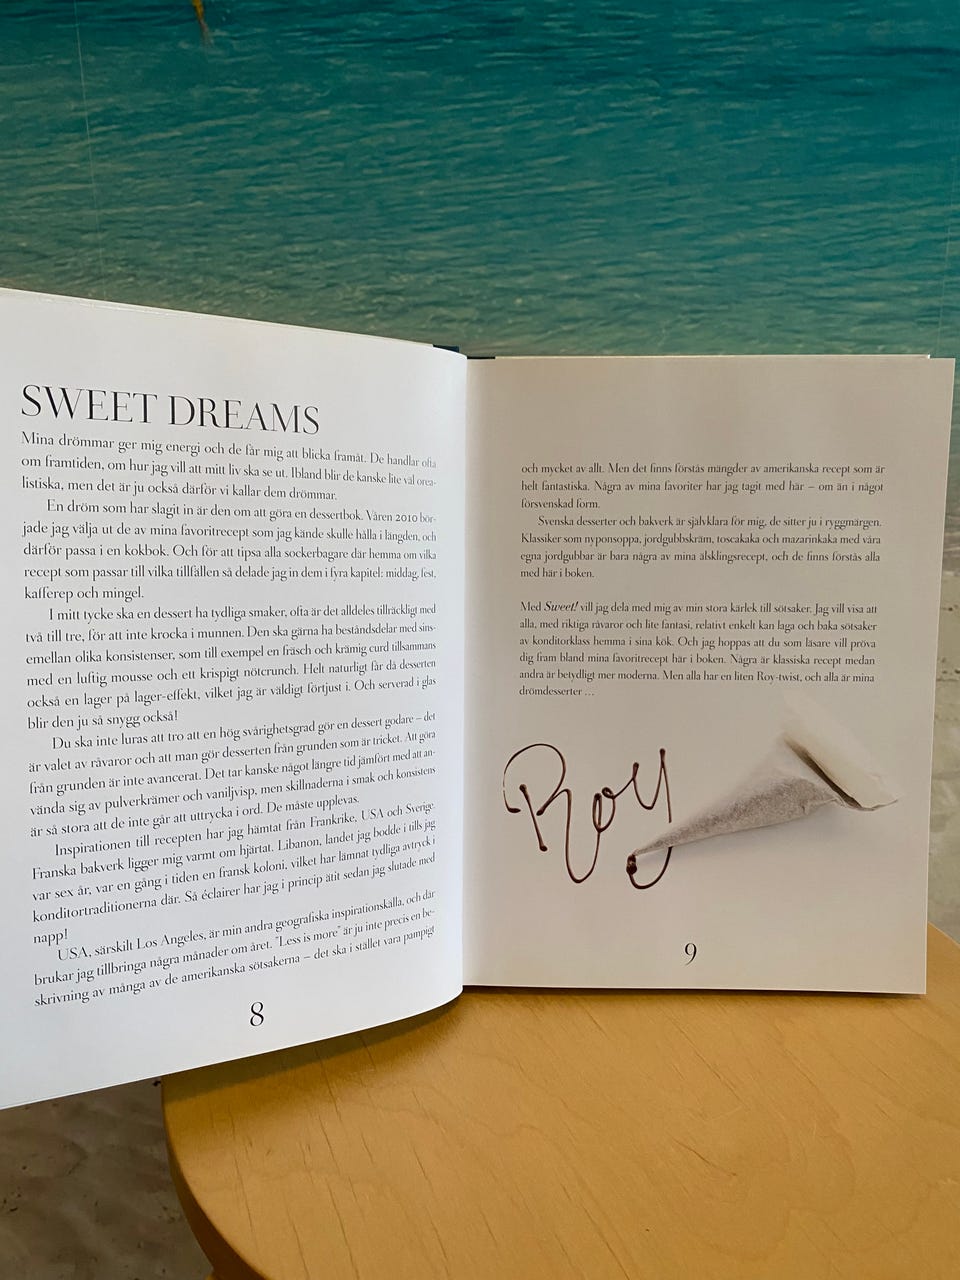 SWEET DREAMS
Mina drömmar ger mig energi och de får mig att blicka framåt. De handlar ofta
om framtiden, om hur jag vill att mitt liv ska se ut. Ibland blir de kanske lite väl orea-
listiska, men det är ju också därför vi kallar dem drömmar.
En dröm som har slagit in är den om att göra en dessertbok. Våren 2010 bör-
jade jag välja ut de av mina favoritrecept som jag kände skulle hålla i längden, och
därför passa i en kokbok. Och för att tipsa alla sockerbagare där hemma om vilka
recept som passar till vilka tillfällen så delade jag in dem i fyra kapitel: middag, fest,
kafferep och mingel.
I mitt tycke ska en dessert ha tydliga smaker, ofta är det alldeles tillräckligt med
två till tre, för att inte krocka i munnen. Den ska gärna ha beståndsdelar med sins-
emellan olika konsistenser, som till exempel en fräsch och krämig curd tillsammans
med en luftig mousse och ett krispigt nötcrunch. Helt naturligt får då desserten
också en lager på lager-effekt, vilket jag är väldigt förtjust i. Och serverad i glas
blir den ju så snygg också!
Du ska inte luras att tro att en hög svårighetsgrad gör en dessert godare – det
är valet av råvaror och att man gör desserten från grunden som är tricket. Att göra
från grunden är inte avancerat. Det tar kanske något längre tid jämfört med att an-
vända sig av pulverkrämer och vaniljvisp, men skillnaderna i smak och konsistens
är så stora att de inte går att uttrycka i ord. De måste upplevas.
Inspirationen till recepten har jag hämtat från Frankrike, USA och Sverige.
Franska bakverk ligger mig varmt om hjärtat. Libanon, landet jag bodde i tills jag
var sex år, var en gång i tiden en fransk koloni, vilket har lämnat tydliga avtryck i
konditortraditionerna där. Så éclairer har jag i princip ätit sedan jag slutade med
napp!
USA, särskilt Los Angeles, är min andra geografiska inspirationskälla, och där
brukar jag tillbringa några månader om året. "Less is more" är ju inte precis en be-
skrivning av många av de amerikanska sötsakerna – det ska i stället vara pampigt
8
och mycket av allt. Men det finns förstås mängder av amerikanska recept som är
helt fantastiska. Några av mina favoriter har jag tagit med här – om än i något
försvenskad form.
Svenska desserter och bakverk är självklara för mig, de sitter ju i ryggmärgen.
Klassiker som nyponsoppa, jordgubbskräm, toscakaka och mazarinkaka med våra
egna jordgubbar är bara några av mina älsklingsrecept, och de finns förstås alla
med här i boken.
Med Sweet! vill jag dela med mig av min stora kärlek till sötsaker. Jag vill visa att
alla, med riktiga råvaror och lite fantasi, relativt enkelt kan laga och baka sötsaker
av konditorklass hemma i sina kök. Och jag hoppas att du som läsare vill pröva
dig fram bland mina favoritrecept här i boken. Några är klassiska recept medan
andra är betydligt mer moderna. Men alla har en liten Roy-twist, och alla är mina
drömdesserter ...
Roy
9